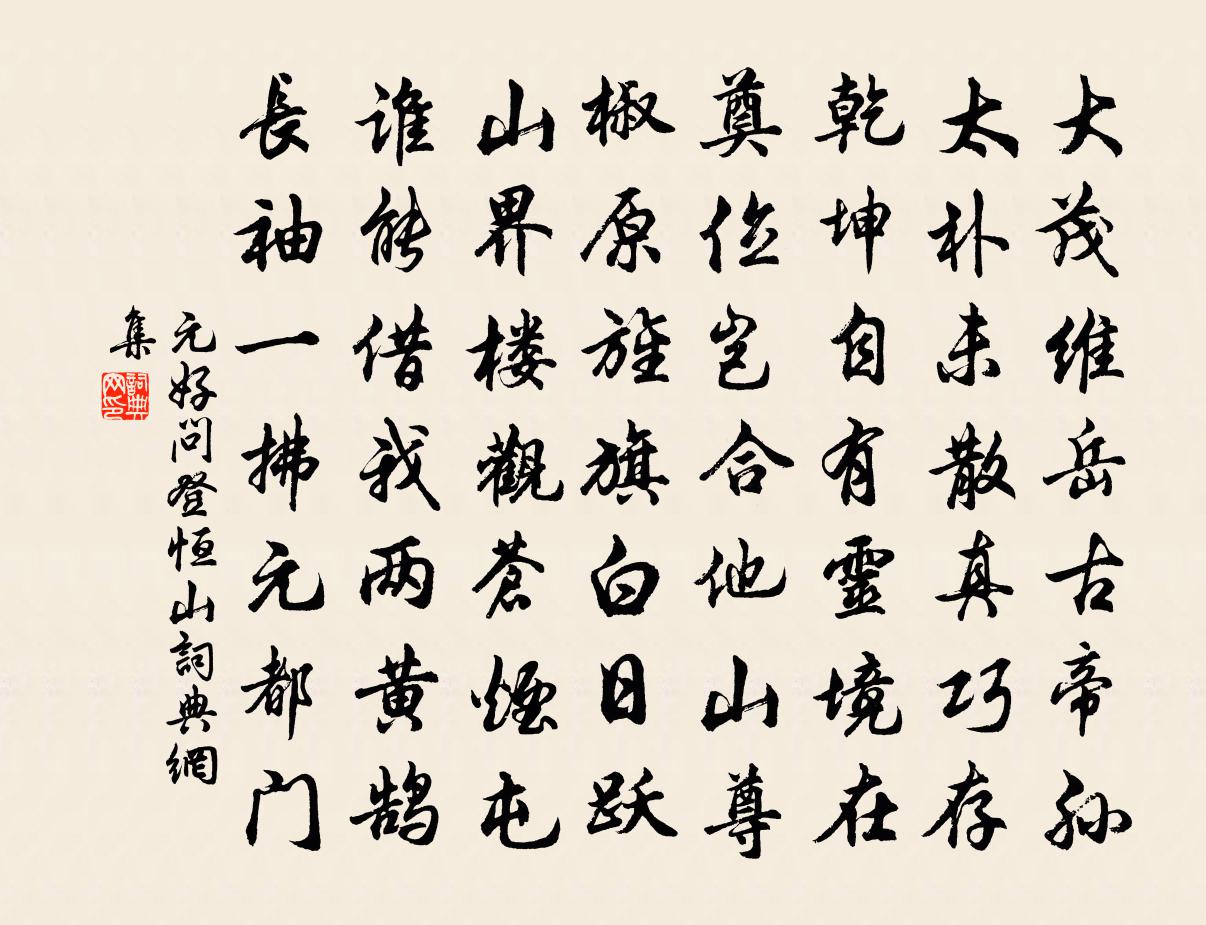 大茂维岳古帝孙
太朴未散真巧存
乾坤自有靈境在
奠位岂合他山尊
椒原旌旗白日跃
山界楼觀蒼煙屯
谁能借我两黄鹄
長袖一拂元都门
元好问登恒山詞典網
集
詞典
网印